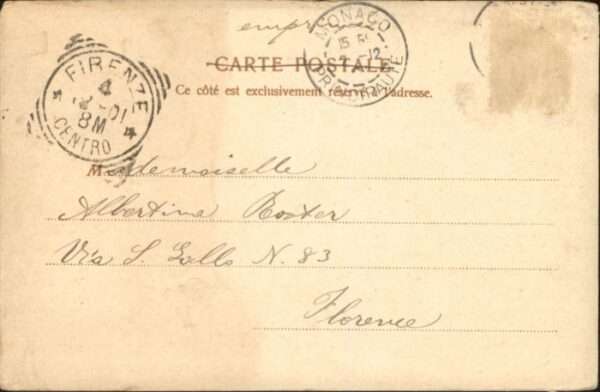 MONACO
PRINCIPAUTÉ
CARTE POSTALE
Ce côté est exclusivement réservé à l'adresse.
FIRENZE
4
8M
CENTRO
Mademoiselle
Albertina Roster
Via S. Gallo N. 83
Florence